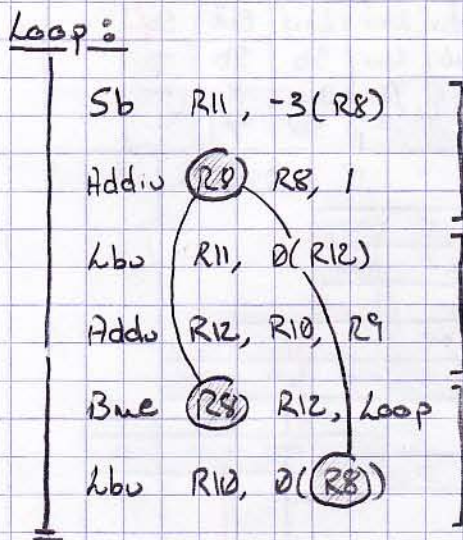 Loop :
Sb R11, -3(R8)
Addiu R8 R8, 1
Lbu R11, 0(R12)
Addu R12, R10, R9
Bne R8 R12, Loop
Lbu R10, 0(R8)